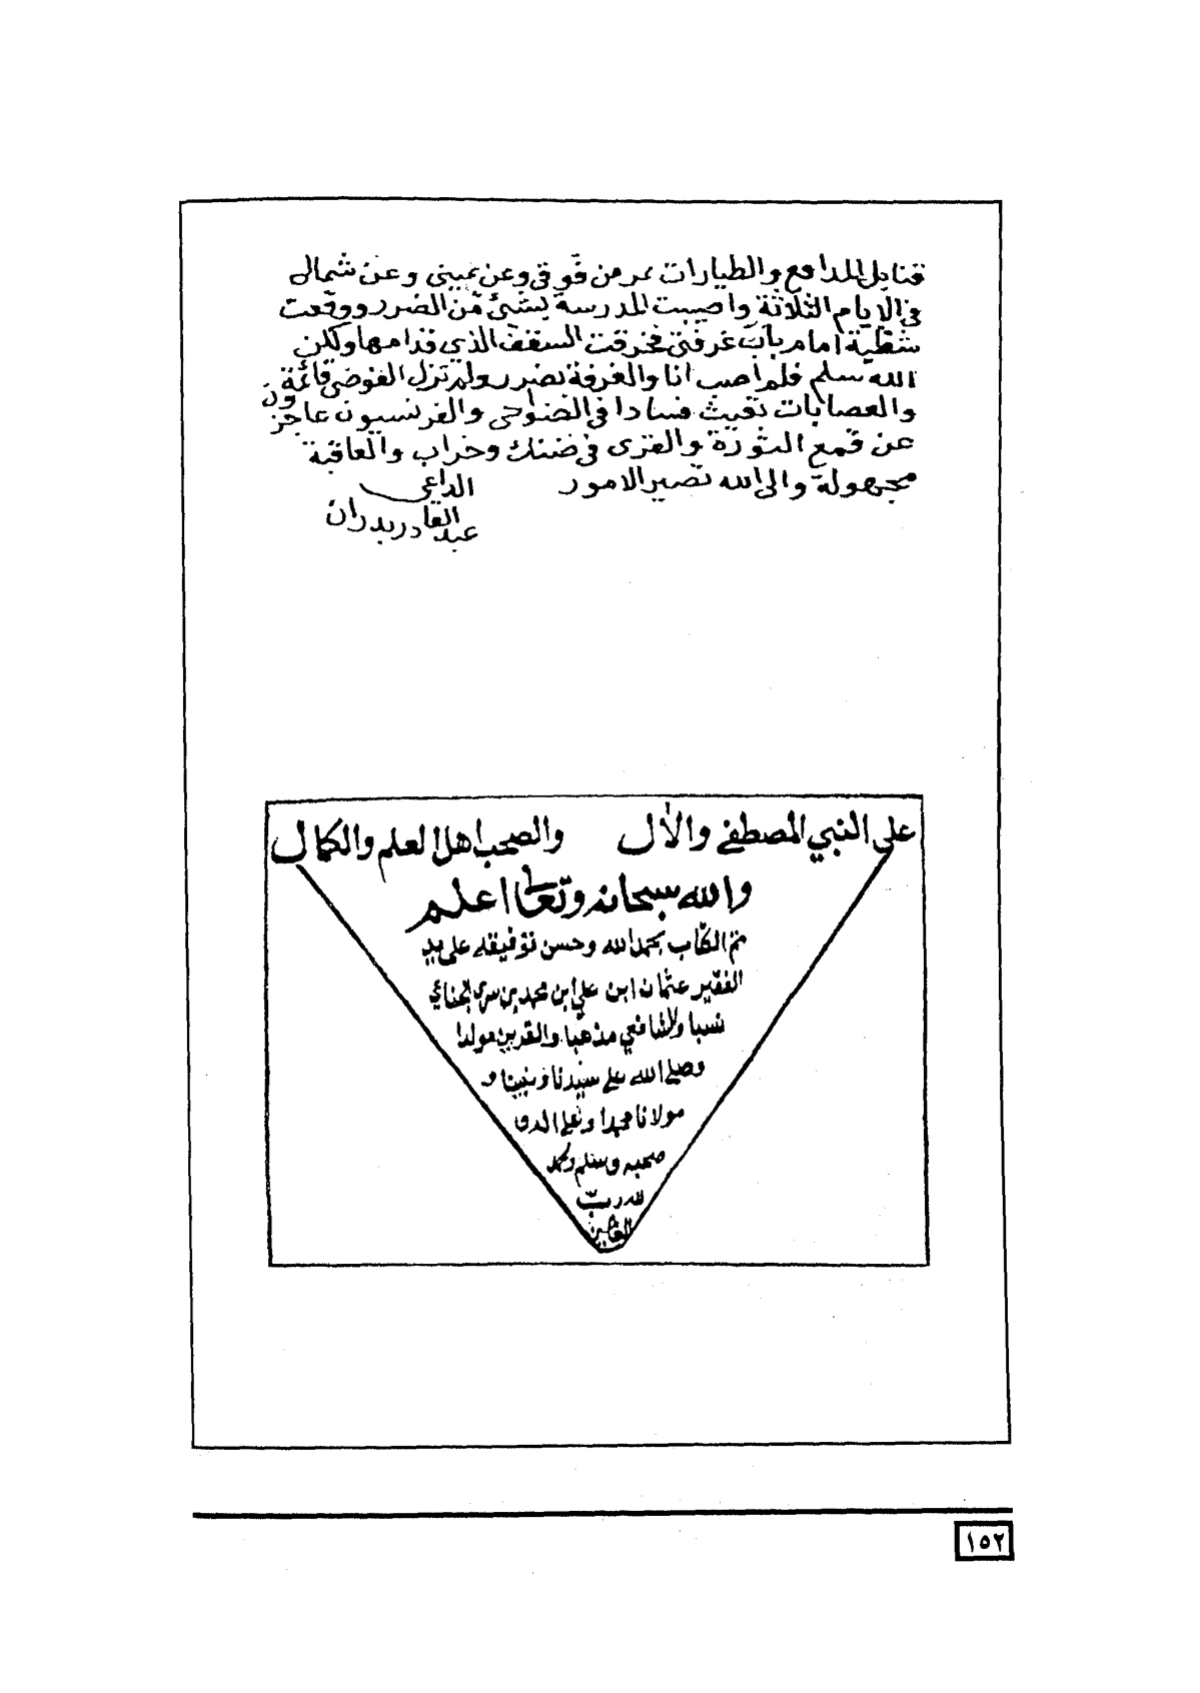 قنابل المدافع والطيارات تمر من فوقي وعن يميني وعن شمالي
في الايام الثلاثة واصيبت المدرسة بشئ من الضرر ووقعت
شظية امام باب غرفتي فخرقت السقف الذي قدامها ولكن
الله سلم فلم اصب انا والغرفة بضرر ولم تزل الفوضى قائمة
والعصابات تعيث فسادا في الضواحي والفرنسيون عاجزون
عن قمع الثورة والقرى في ضنك وخراب والعاقبة
مجهولة والى الله تصير الامور الداعي
عبد القادر بدران
على النبي المصطفى والآل والصحب اهل العلم والكمال
والله سبحانه وتعالى اعلم
تم الكتاب بحمد الله وحسن توفيقه على يد
الفقير عثمان ابن علي ابن محمد بن سري
نسبا والشافعي مذهبا والقرين مولدا
وصلى الله على سيدنا ونبينا و
مولانا محمدا وعلى اله و
صحبه وسلم والحمد
لله رب
العالمين
١٥٢